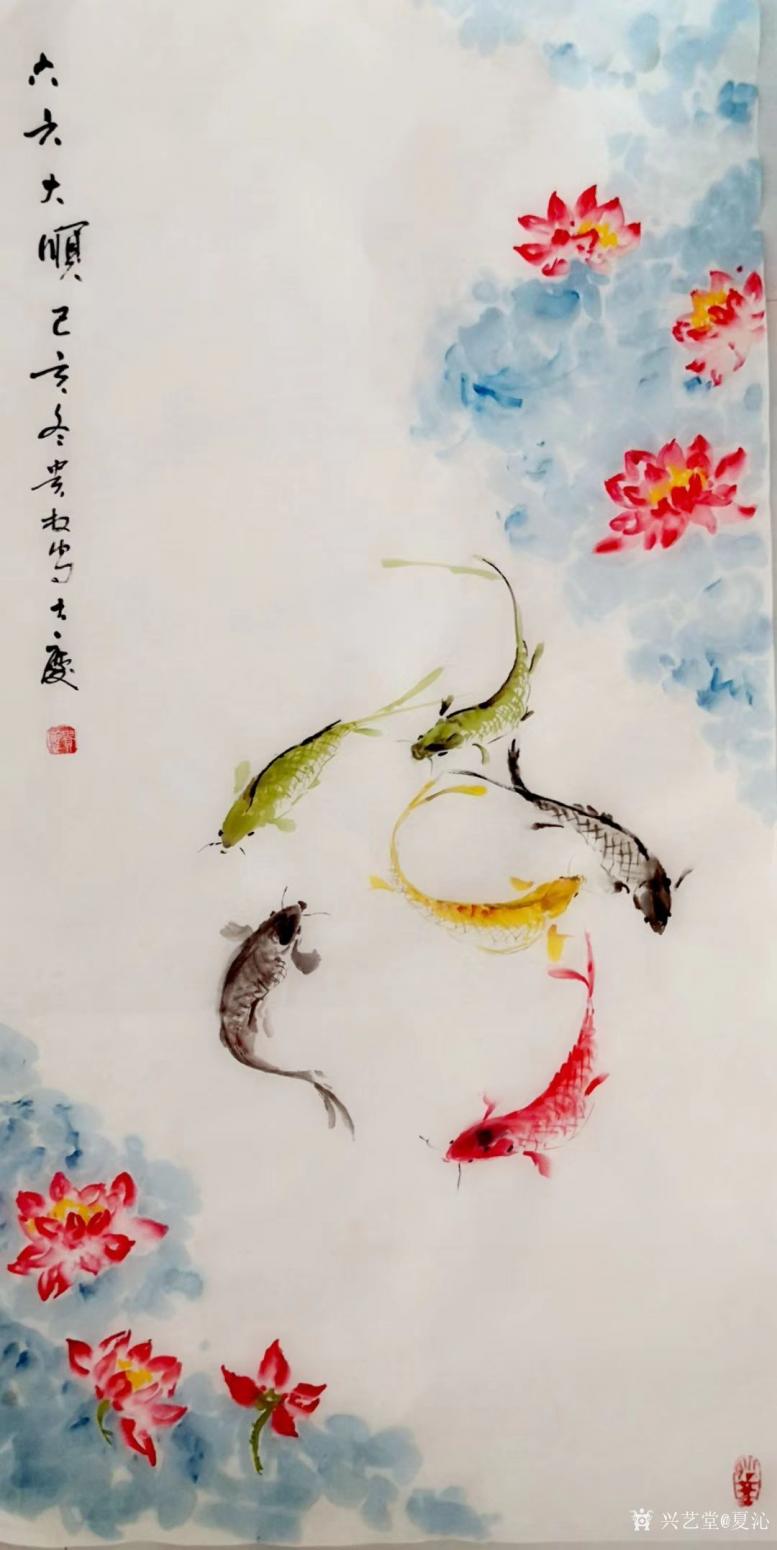 六六大順己亥冬贵叔写大庆
兴艺堂@夏沁